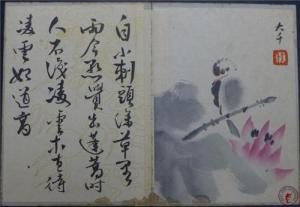 自小刺頭深草裏
而今漸覺出蓬蒿時
人不識凌雲木直待
凌雲始道高
大千